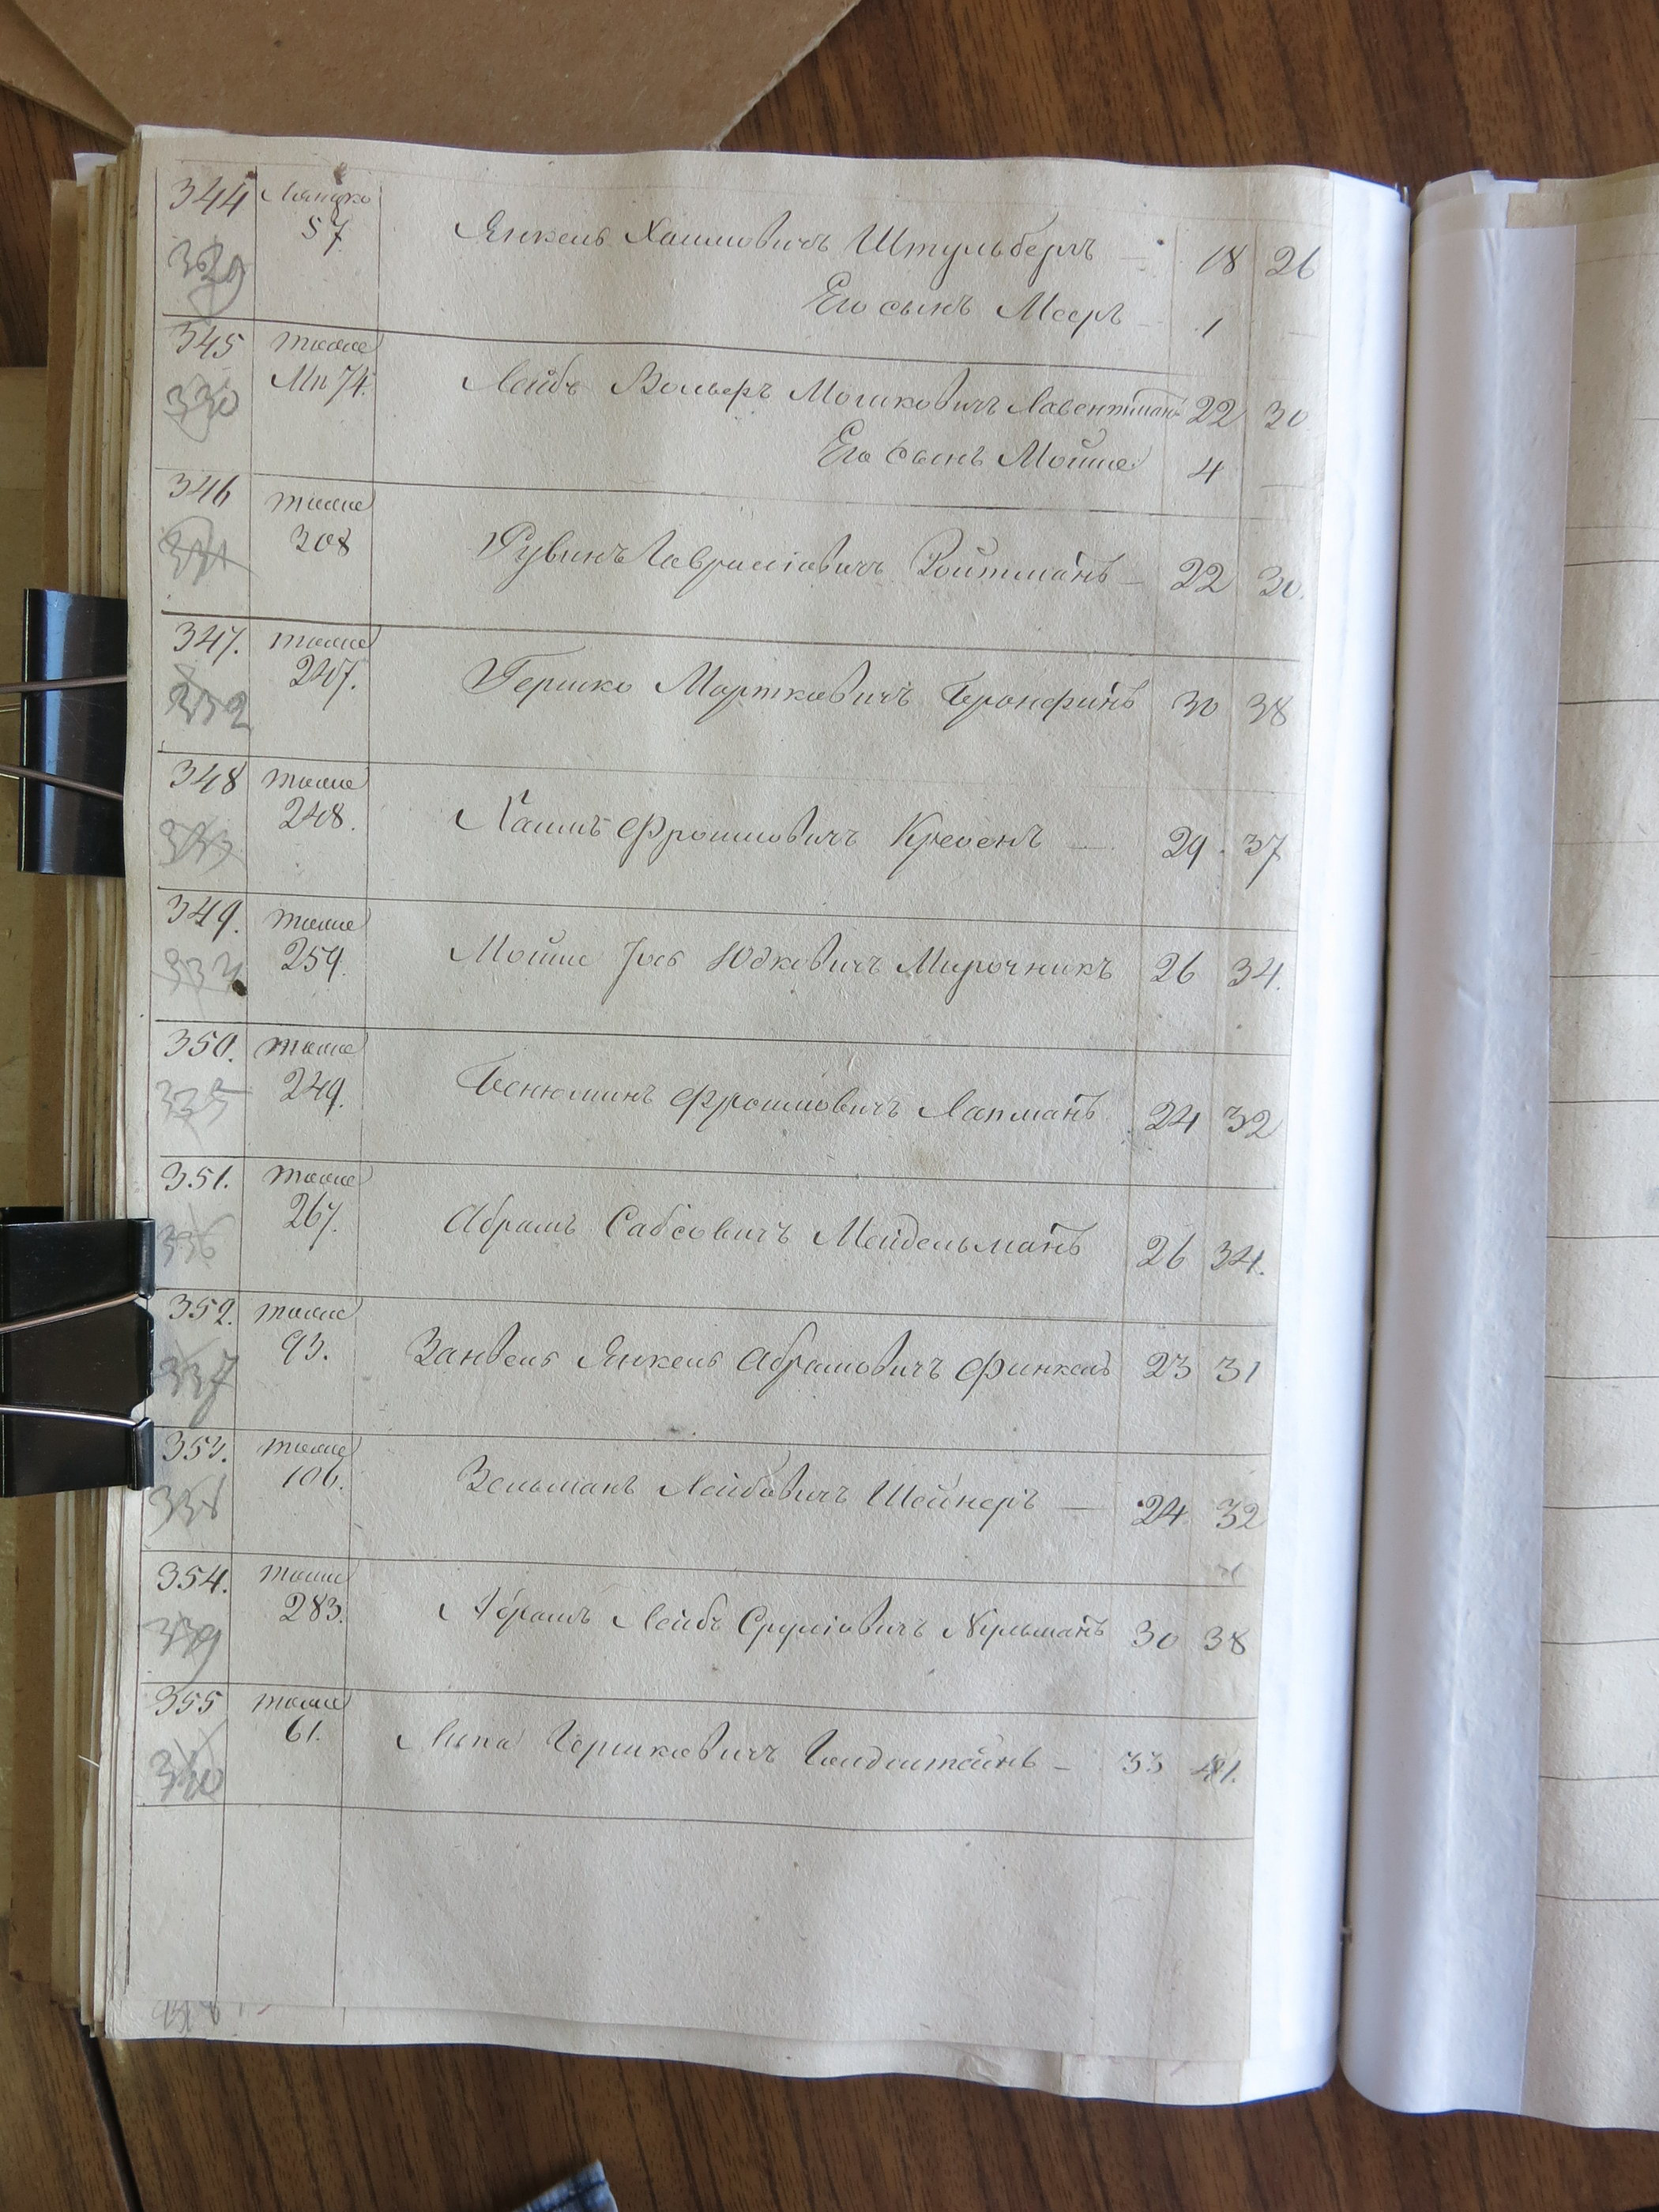 344 57 Янкель Хаимовичъ Штульберъ — 18 26
329
Его сынъ Мееръ — 1 —
345 тоже
330 74. Лейбъ Вольфъ Мошковичъ Лавентманъ 22 30
Его сынъ Мойше 4 —
346 тоже
331 308 Рувинъ Гаврилiовичъ Ройтманъ — 22 30.
347. тоже
332 247. Гершко Мортковичъ Бронфинъ 30 38
348 тоже
333 248. Хаимъ Фроимовичъ — 29 37
349. тоже
334 259. Мойше Іось Юдковичъ Мирочникъ 26 34.
350. тоже
335 249. Бенюминъ Фроимовичъ Лапманъ 24 32
351. тоже
336 267. Абрамъ Сабсовичъ Мейдельманъ 26 34.
352. тоже
337 93. Занвель Янкель Абрамовичъ Финкель 23 31
353. тоже
338 106. Зельманъ Лейбовичъ Шейнеръ — 24 32
354. тоже
339 283. Абрамъ Лейбъ Срулiовичъ 30 38
355 тоже
340 61. Липа Гершковичъ Голдштейнъ — 33 41.